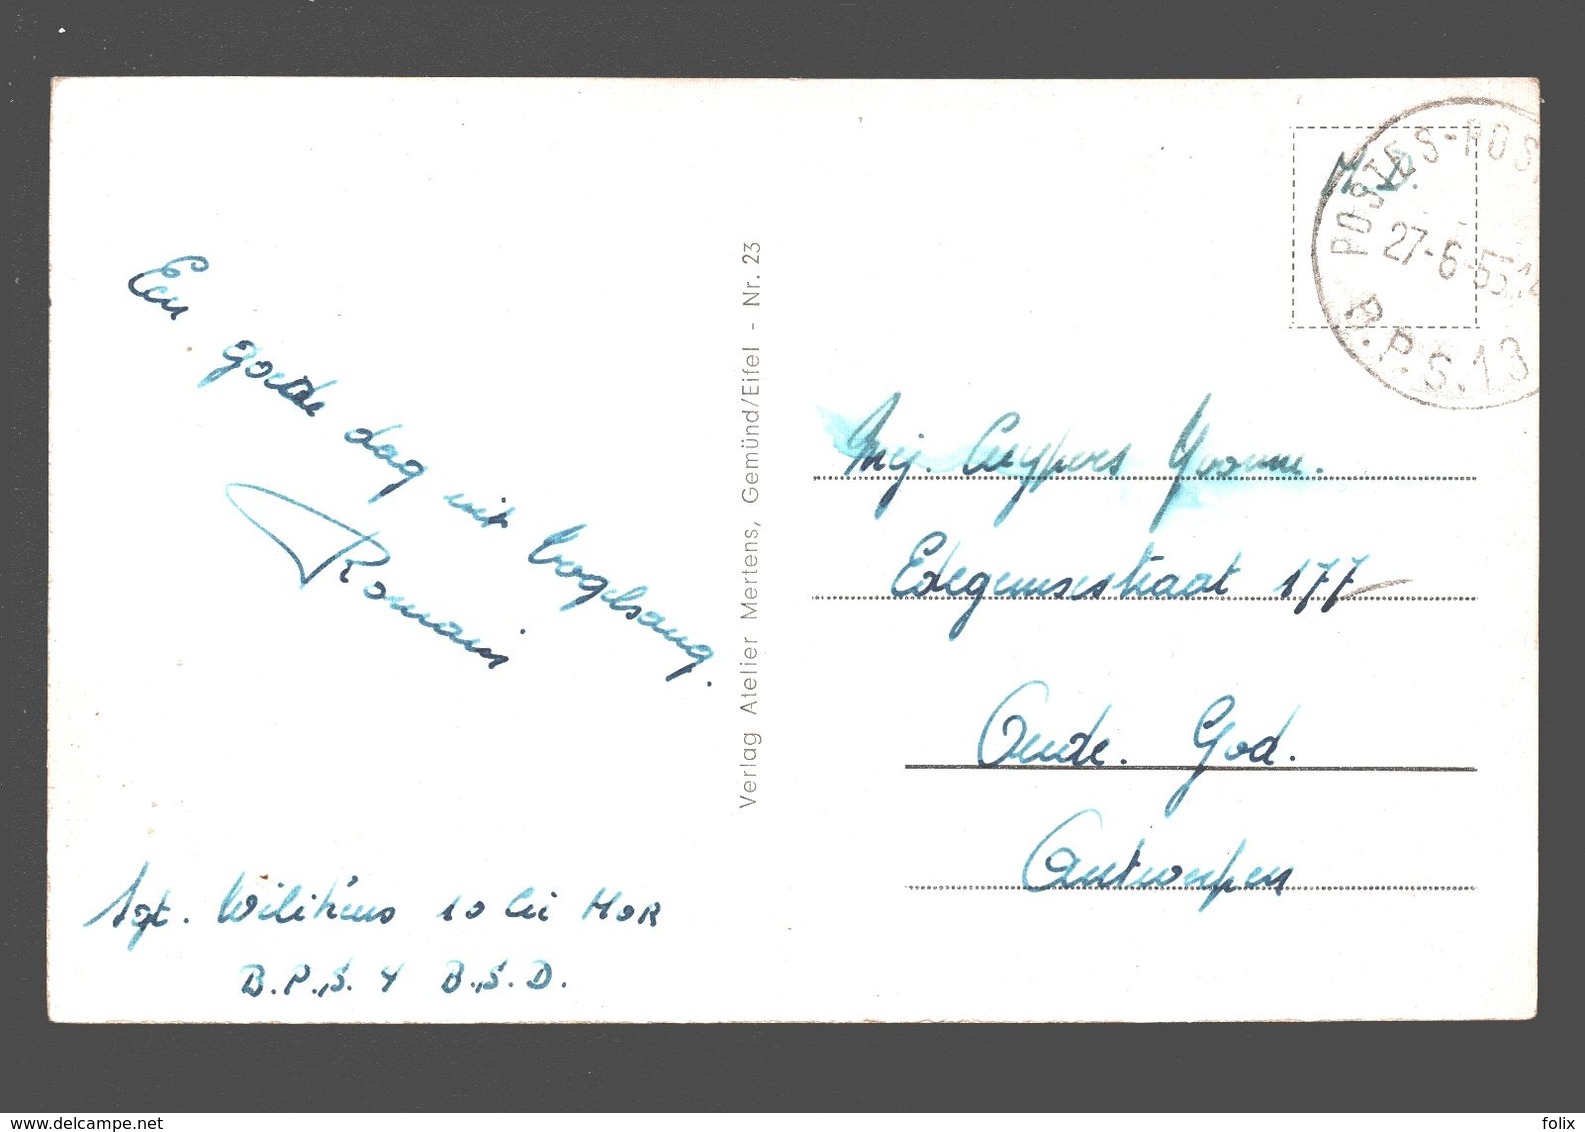 Een goede dag uit Vogelsang.
Romain
Sgt. Wilikens 10 Cie MOR
B.P.S. 4 B.S.D.
Verlag Atelier Mertens, Gemünd/Eifel - Nr. 23
M.D.
POSTES-POS
27-6-55
B.P.S.13
Mej. Cuypers Yvonne.
Edegemsestraat 177
Oude. God.
Antwerpen
delcampe.net
folix